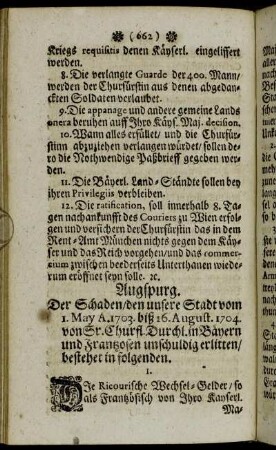 (662)
Kriegs requisitis denen Käyserl. eingeliffert
werden.
8. Die verlangte Guarde der 400. Mann/
werden der Churfürstin aus denen abgedan-
ckten Soldaten verlaubet.
9. Die appanage und andere gemeine Lands
onera beruhen auff Ihro Käys. Maj. decision.
10. Wann alles erfüllet/ und die Churfü-
stinn abzuziehen verlangen würdet/ sollen de-
ro die Nothwendige Paßbrieff gegeben wer-
den.
11. Die Bäyerl. Land-Ständte sollen bey
ihren Privilegiis verbleiben.
12. Die ratification, soll innerhalb 8. Ta-
gen nachankunfft des Couriers zu Wien erfol-
gen und versichern der Churfürstin das in dem
Rent-Amt München nichts gegen dem Käy-
ser und das Reich vorgehen/ und das commer-
cium zwischen beederseits Unterthanen wiede-
rum eröffnet seyn solle. ꝛc.
Augspurg.
Der Schaden/den unsere Stadt vom
1. May A. 1703. biß 16. August. 1704.
von Sr. Churfl. Durchl. in Bäyern
und Frantzosen unschuldig erlitten/
bestehet in folgenden.
1.
DIe Ricourische Wechsel-Gelder/ so
als Frantzösisch von Ihro Kayserl.
Ma-